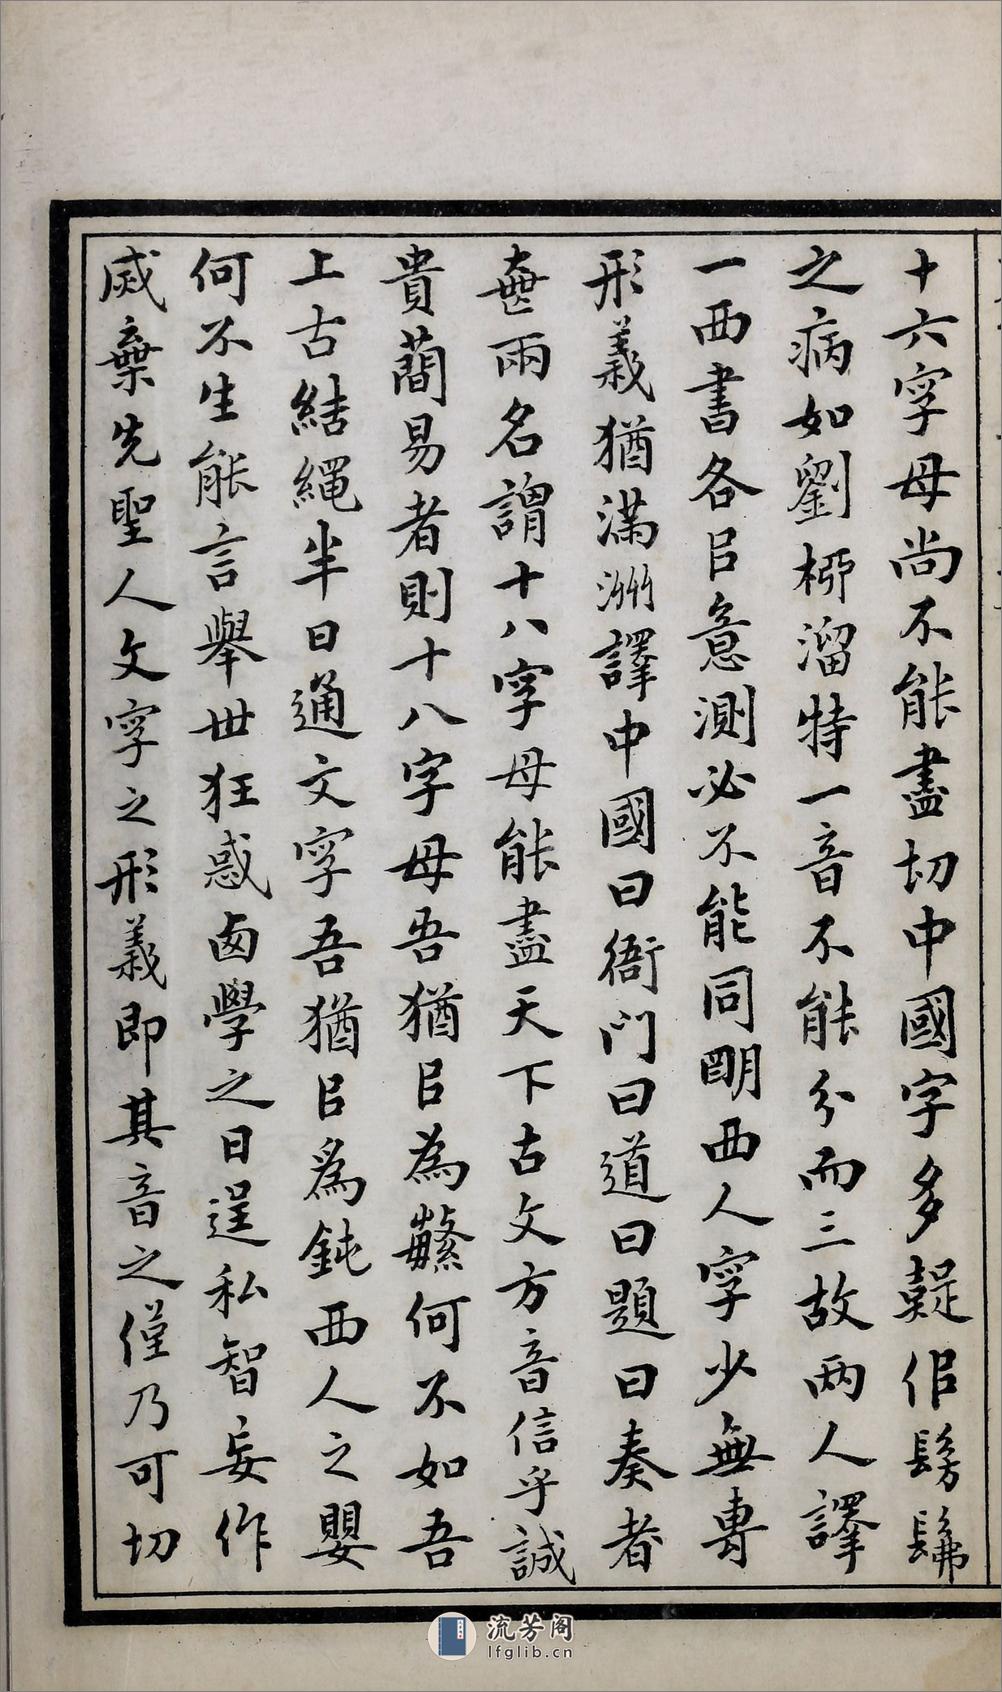 十六字母尚不能盡切中國字多疑似髣髴
之病如劉桺溜特一音不能分而三故兩人譯
一西書各㠯意測必不能同朙西人字少無專
形義猶滿洲譯中國曰衙門曰道曰題曰奏者
無兩名謂十八字母能盡天下古文方音信乎誠
貴蕳易者則十八字母吾猶㠯為蘩何不如吾
上古結繩半日通文字吾猶㠯爲鈍西人之嬰
何不生能言舉世狂惑西學之日逞私智妄作
烕棄先聖人文字之形義即其音之僅乃可切
流芳阁
lfglib.cn